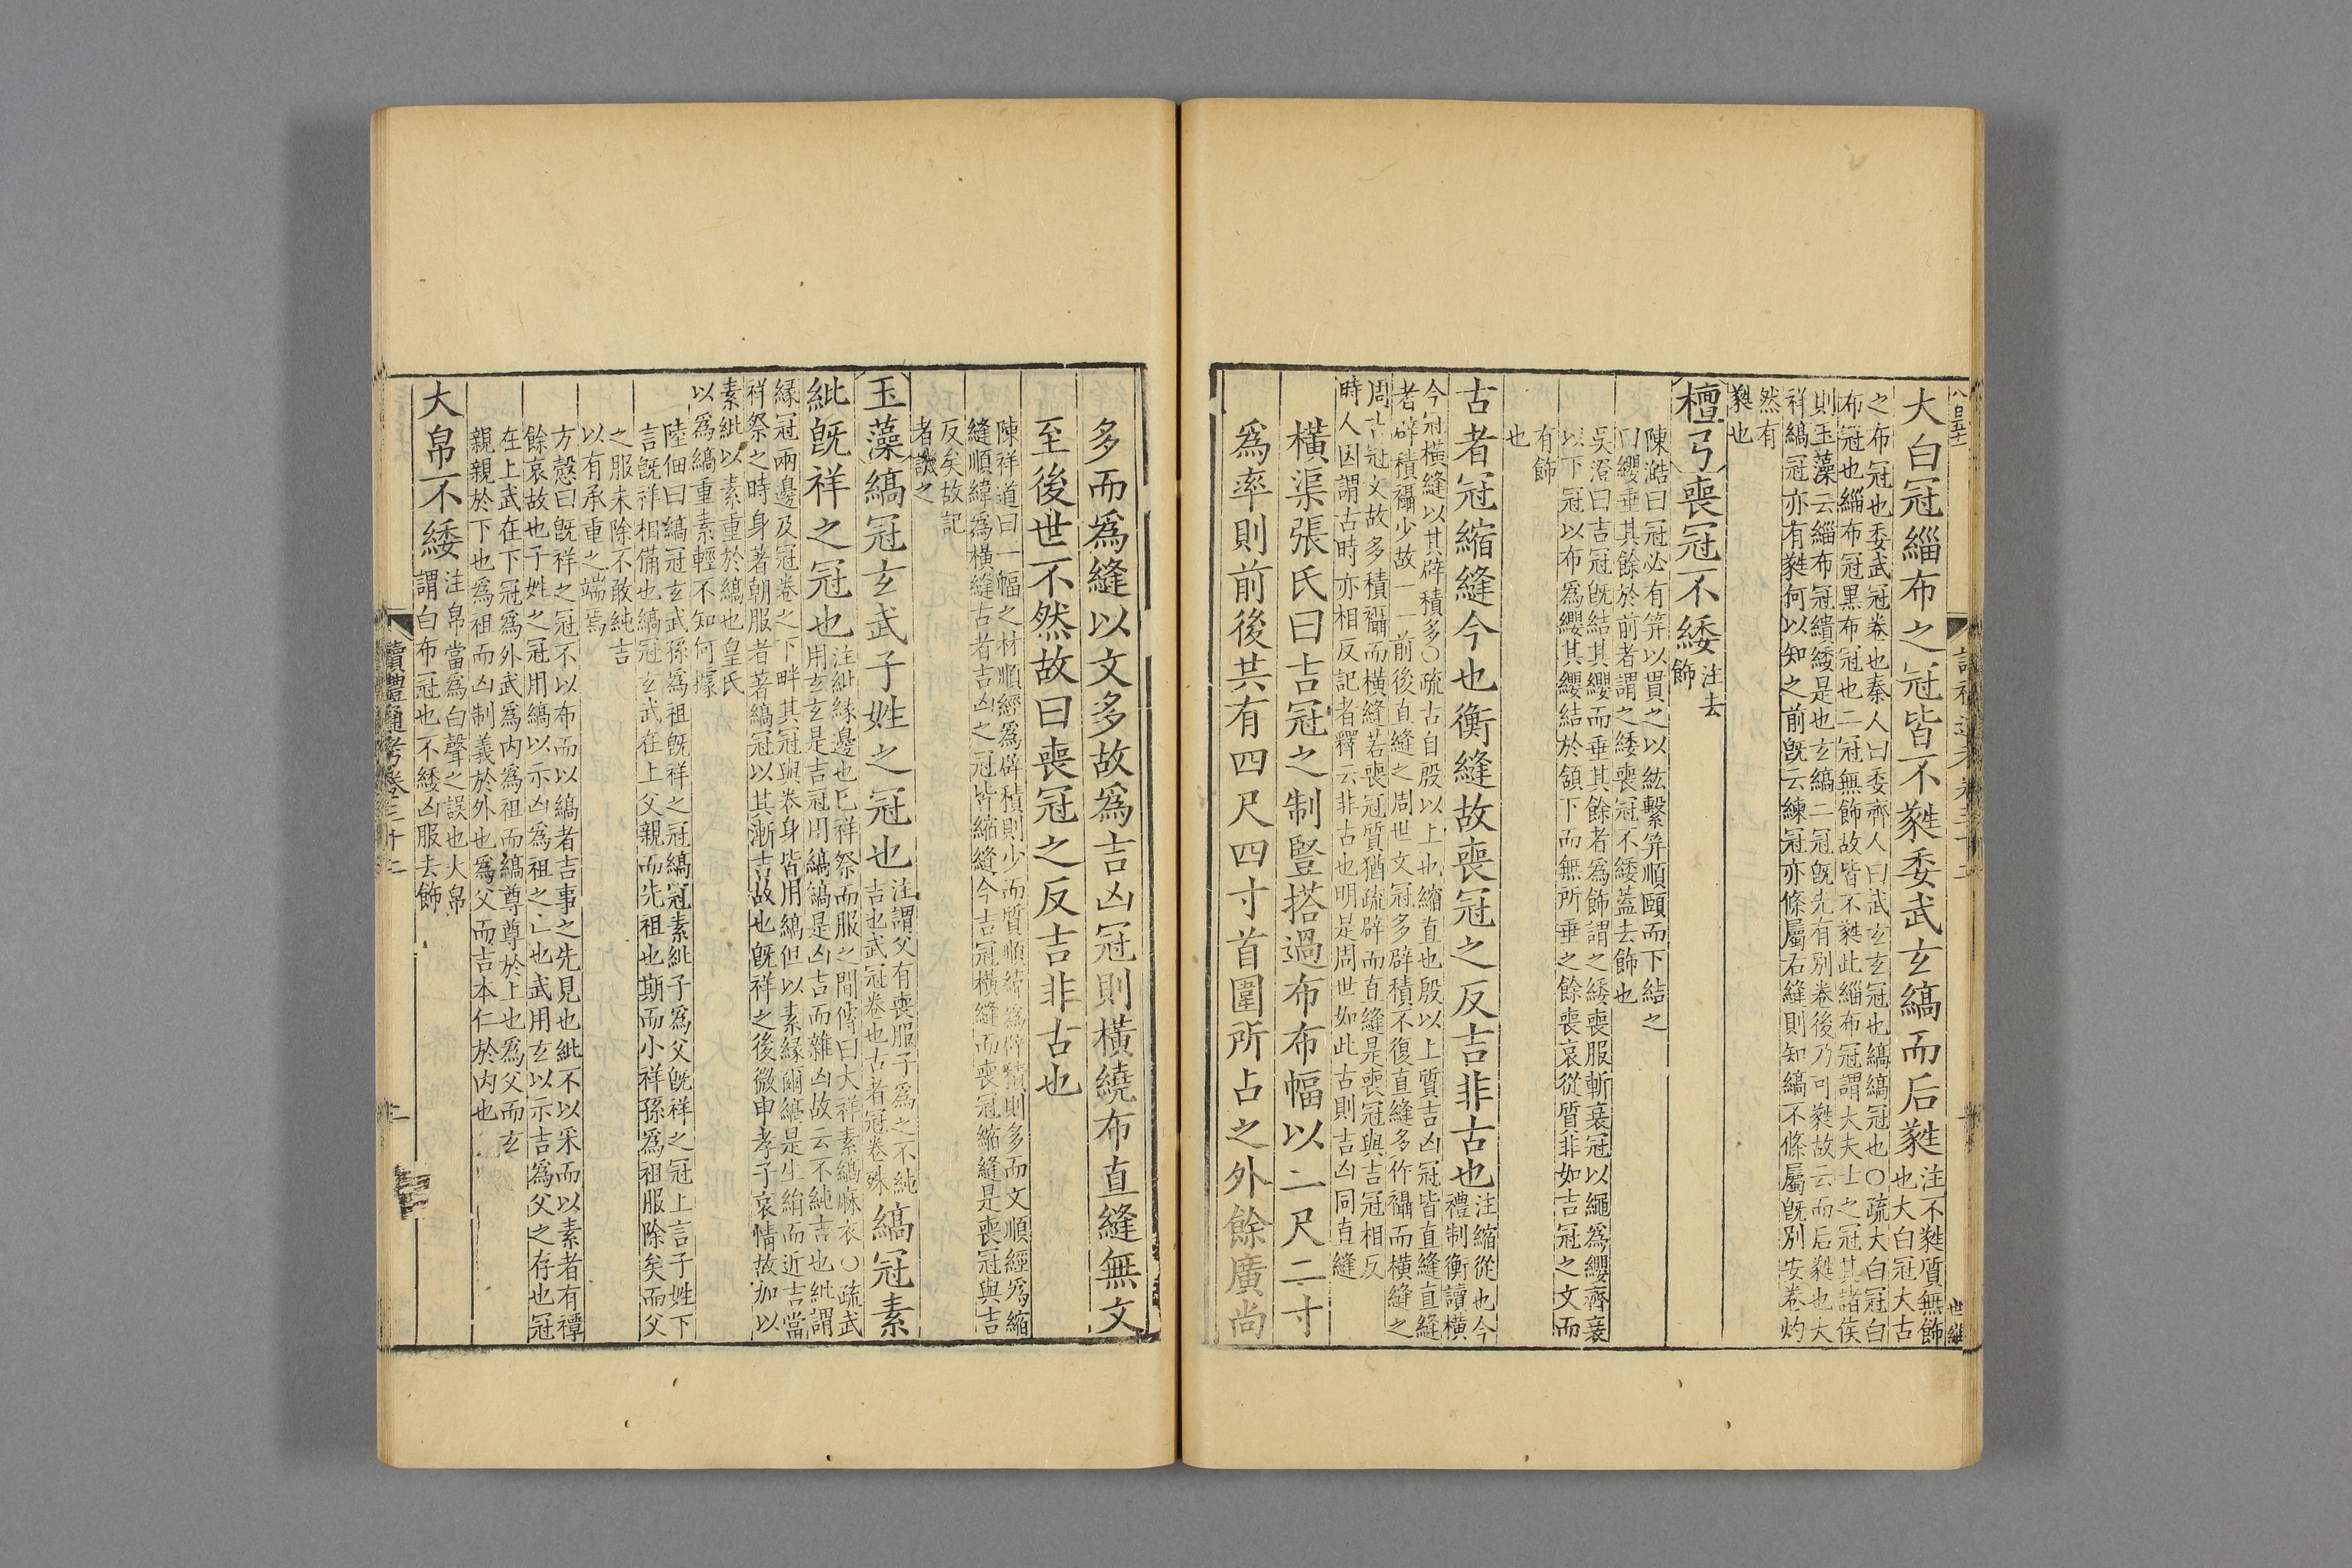 八百五十
讀禮通考卷三十二
世維
大白冠緇布之冠皆不蕤委武玄縞而后蕤注不蕤質無飾
也大白冠大古
之布冠也委武冠卷也秦人曰委齊人曰武玄玄冠也縞縞冠也○疏大白冠白
布冠也緇布冠黑布冠也二冠無飾故皆不蕤此緇布冠謂大夫士之冠其諸侯
則玉藻云緇布冠繢緌是也玄縞二冠旣先有別卷後乃可蕤故云而后蕤也大
祥縞冠亦有蕤何以知之前旣云練冠亦條屬右縫則知縞不條屬旣別安卷灼
然有
蕤也
檀弓喪冠不緌注去
飾
陳澔曰冠必有筓以貫之以紘繫筓順頤而下結之
曰纓垂其餘於前者謂之緌喪冠不緌蓋去飾也
吳澄曰吉冠旣結其纓而垂其餘者為飾謂之緌喪服斬衰冠以繩為纓齊衰
以下冠以布為纓其纓結於頷下而無所垂之餘喪哀從質非如吉冠之文而
有飾
也
古者冠縮縫今也衡縫故喪冠之反吉非古也注縮從也今
禮制衡讀橫
今冠橫縫以其辟積多○疏古自殷以上也縮直也殷以上質吉凶冠皆直縫直縫
者辟積襵少故一一前後直縫之周世文冠多辟積不復直縫多作襵而橫縫之
周世冠文故多積襵而橫縫若喪冠質猶疏辟而直縫是喪冠與吉冠相反
時人因謂古時亦相反記者釋云非古也明是周世如此古則吉凶同直縫
橫渠張氏曰吉冠之制豎搭過布布幅以二尺二寸
爲率則前後共有四尺四寸首圍所占之外餘廣尚
多而爲縫以文多故爲吉凶冠則橫繞布直縫無文
至後世不然故曰喪冠之反吉非古也
陳祥道曰一幅之材順經爲辟積則少而質順緯爲辟積則多而文順經爲縮
縫順緯爲橫縫古者吉凶之冠皆縮縫今吉冠橫縫而喪冠縮縫是喪冠與吉
反矣故記
者譏之
玉藻縞冠玄武子姓之冠也注謂父有喪服子爲之不純
吉也武冠卷也古者冠卷殊縞冠素
紕旣祥之冠也注紕緣邊也已祥祭而服之間傳曰大祥素縞麻衣○疏武
用玄玄是吉冠用縞縞是凶吉而雜凶故云不純吉也紕謂
緣冠兩邊及冠卷之下畔其冠與卷身皆用縞但以素緣耳縞是生絹而近吉當
祥祭之時身著朝服者著縞冠以其漸吉故也旣祥之後微申孝子哀情故加以
素紕以素重於縞也皇氏
以爲縞重素輕不知何據
陸佃曰縞冠玄武孫爲祖旣祥之冠縞冠素紕子爲父旣祥之冠上言子姓下
言旣祥相備也縞冠玄武在上父親而先祖也期而小祥孫爲祖服除矣而父
之服未除不敢純吉
以有承重之端焉
方慤曰旣祥之冠不以布而以縞者吉事之先見也紕不以采而以素者有禫
餘哀故也子姓之冠用縞以示凶爲祖之亡也武用玄以示吉爲父之存也冠
在上武在下冠爲外武爲內爲祖而縞尊尊於上也爲父而玄
親親於下也爲祖而凶制義於外也爲父而吉本仁於內也
大帛不緌注帛當爲白聲之誤也大帛
謂白布冠也不緌凶服去飾
讀禮通考卷三十二
二